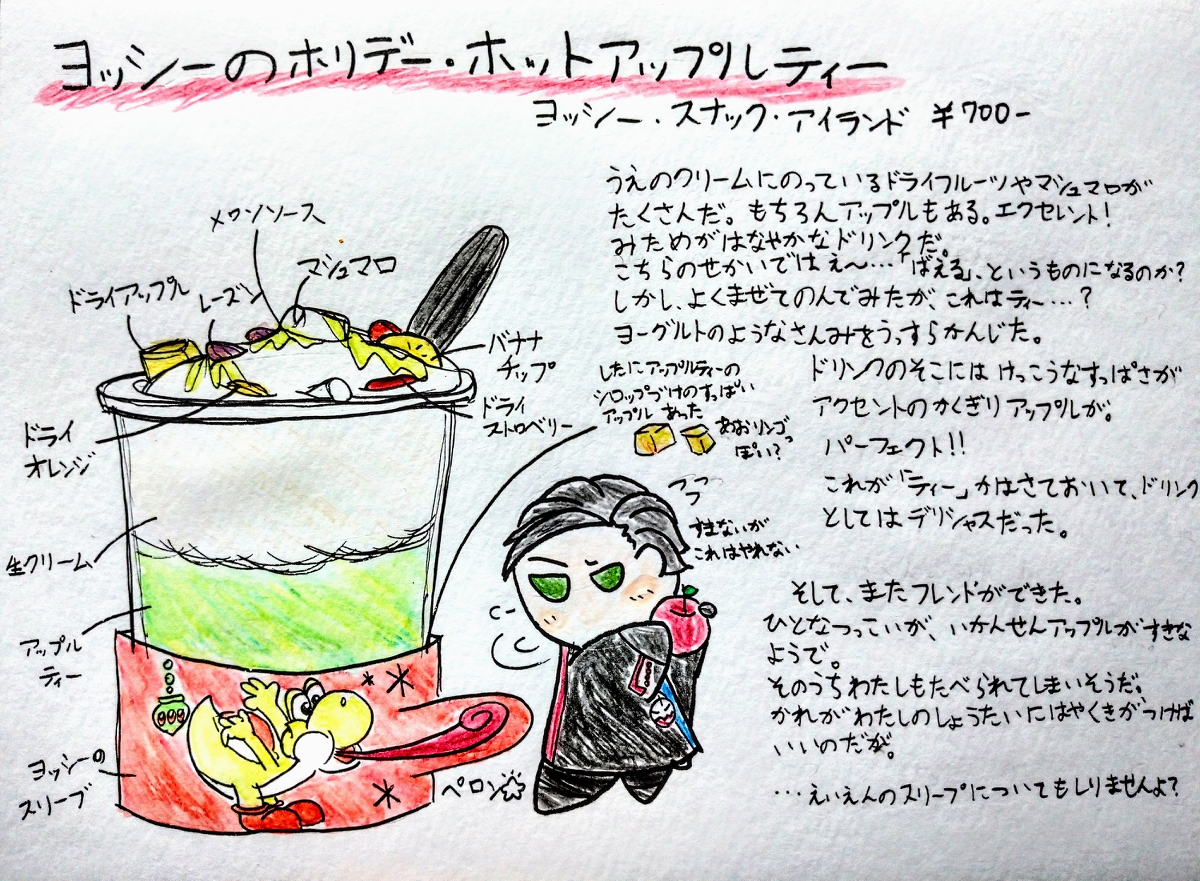 ヨッシーのホリデー・ホットアップルティー
ヨッシー・スナック・アイランド ¥700-
うえのクリームにのっているドライフルーツやマシュマロが
たくさんだ。もちろんアップルもある。エクセレント!
みためがはなやかなドリンクだ。
こちらのせかいではえ〜…「ばえる」、というものになるのか?
しかし、よくまぜてのんでみたが、これはティー…?
ヨーグルトのようなさんみをうっすらかんじた。
ドリンクのそこには けっこうなすっぱさが
アクセントのかくぎりアップルが。
パーフェクト!!
これが「ティー」かはさておいて、ドリンク
としてはデリシャスだった。
そして、またフレンドができた。
ひとなつっこいが、いかんせんアップルがすきな
ようで。
そのうちわたしもたべられてしまいそうだ。
かれがわたしのしょうたいにはやくきがつけば
いいのだが。
…えいえんのスリープについてもしりませんよ?
メロンソース
マシュマロ
ドライアップル
レーズン
バナナ
チップ
ドライ
ストロベリー
ドライ
オレンジ
生クリーム
アップル
ティー
ヨッシーの
スリーブ
したにアップルティーの
シロップづけのすっぱい
アップル あった
あおリンゴっ
ぽい?
フフ
フ
すまないが
これはやれない
ペロン☆